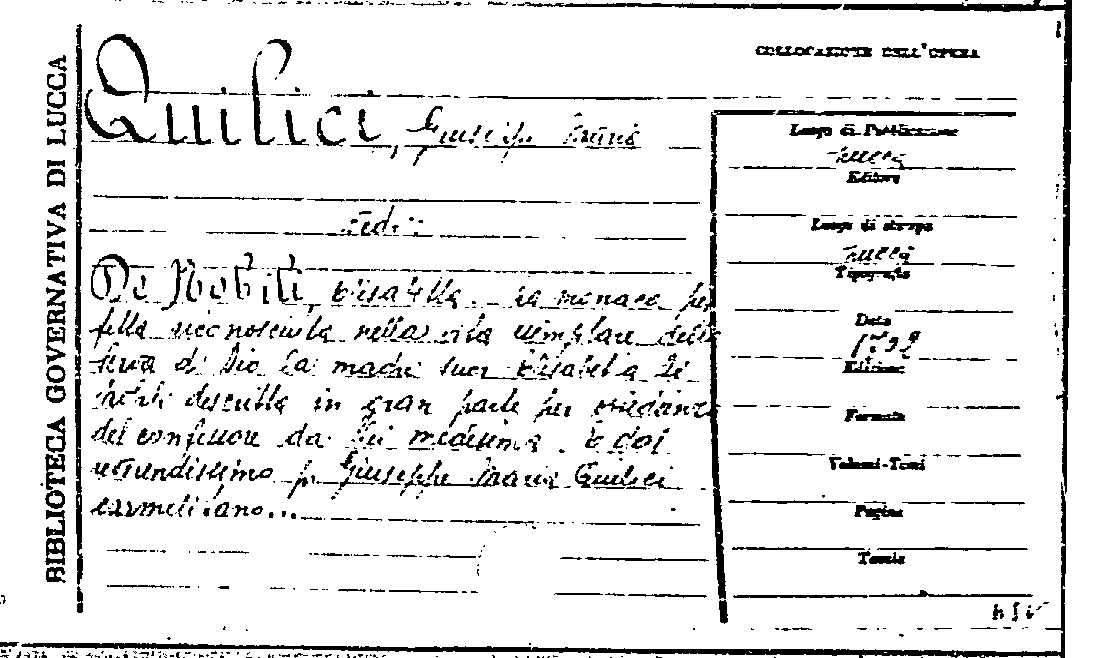 BIBLIOTECA GOVERNATIVA DI LUCCA
COLLOCAZIONE DELL'OPERA
Quilici, Giuseppe Maria
Luogo di Pubblicazione
Lucca
Editore
Luogo di stampa
Lucca
Tipografia
Data
Edizione
Formato
Volumi-Tomi
Pagine
Tavole
ed.
De Nobili, Elisabetta. La monaca per
fetta riconosciuta nella vita esemplare della
serva di Dio la madre suor Elisabetta De
Nobili descritta in gran parte per obedienza
del confessore da lei medesima. E dal
reverendissimo p. Giuseppe Maria Quilici
carmelitano...